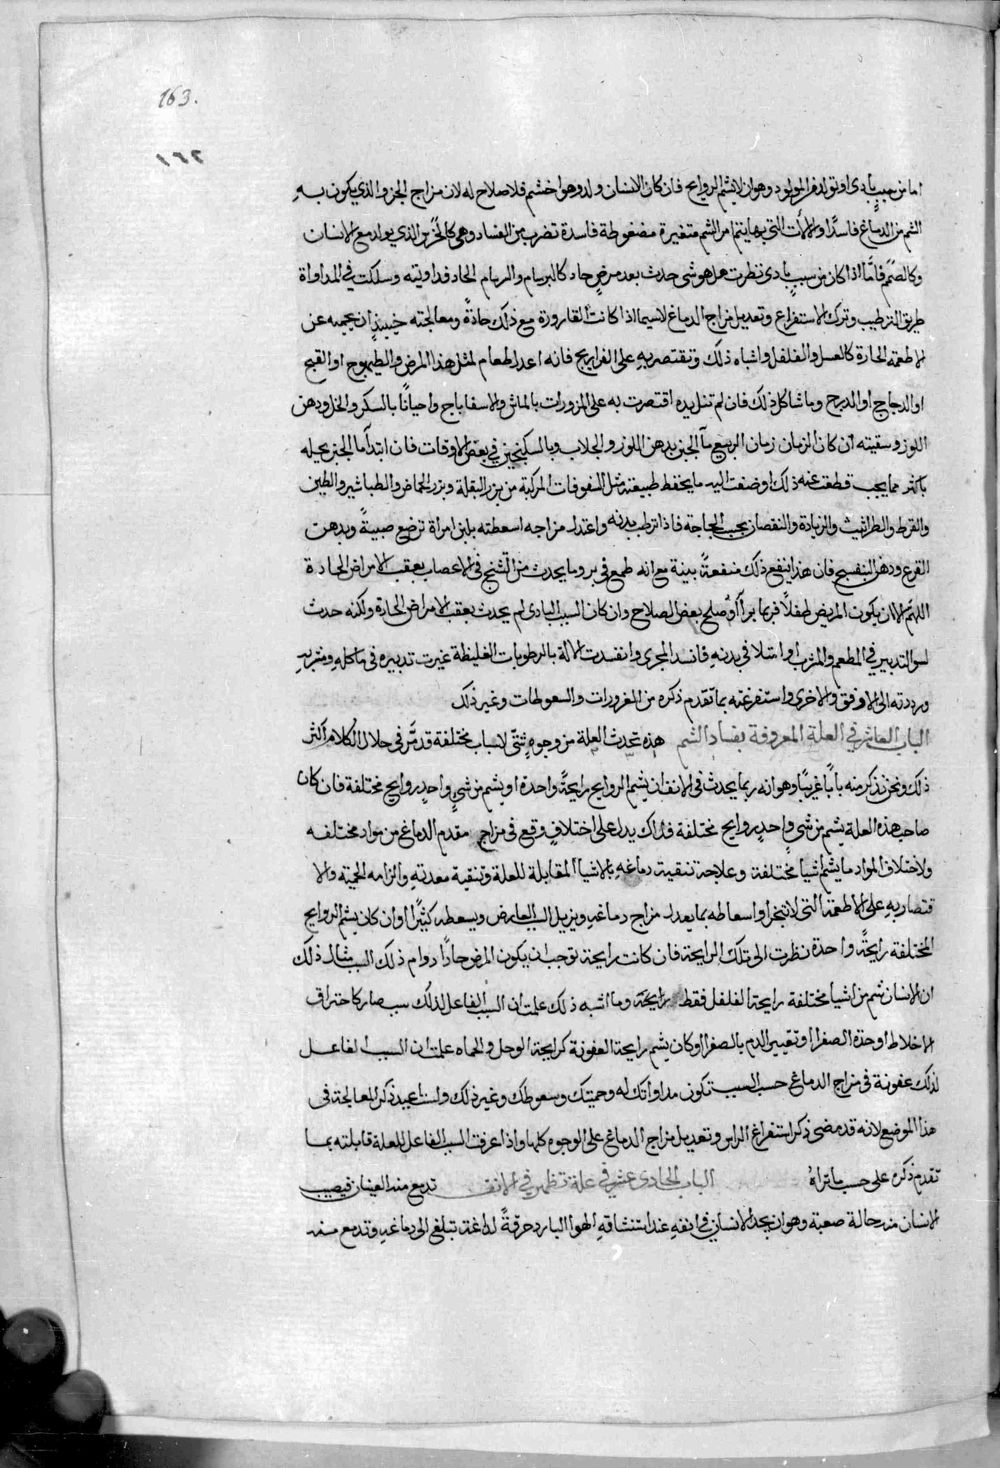 163.
١٦٢
اما من سبب بادى او تولد فى المولود وهوان لا يشم الروايح فان كان الانسان ولد وهو اخشم فلا صلاح له لان مزاج الجزو الذى يكون به
الشم من الدماغ فاسدًا والالات التى بها يتم امر الشم متغيرة مضغوطة فاسدة تضرب من الفساد وهى كالخرس الذى يولد مع الانسان
وكالصمم فامّا اذا كان من سبب بادى نظرت هل هو شى حدث بعد مرض حاد كالبرسام والسرسام الحاد فداويته وسلكت فى المداواة
طريق الترطيب وترك الاستفراغ وتعديل مزاج الدماغ لاسيما اذا كانت القارورة مع ذلك حادة ومعالجته حينيذ ان تحميه عن
الاطعمة الحارة كالعسل والفلفل واشباه ذلك وتقتصر به على الفراريج فانه اعدل طعام لمثل هذا المرض والطيهوج او القبج
او الدجاج او الدرج وما شاكل ذلك فان لم تنل يده اقتصرت به على المزورات بالماش والاسفاناج واحيانًا بالسكر والخل ودهن
اللوز وسقيته ان كان الزمان زمان الربيع مآ الجبن بدهن اللوز والجلاب وبالسكنجبين فى بعض الاوقات فان ابتدأ ما الجبن يحيله
باكثر مما يجب قطعت عنه ذلك اوضفت اليه ما يحفظ طبيعته مثل السفوفات المركبة من بزر البقلة وبزر الحماض والطباشير والطين
والقرط والطراثيث والزيادة والنقصان بحسب الحاجة فاذا ترطب بدنه واعتدل مزاجه اسعطته بلبن امراة ترضع صبية وبدهن
القرع ودهن البنفسج فان هذا ينفع ذلك منفعةً بينة مع انه طمع فى برو ما يحدث من التشنج فى الاعصاب بعقب الامراض الحادة
اللهم الا ان يكون المريض طفلًا فربما برأ او صلح بعض الصلاح وان كان السبب البادى لم يحدث بعقب الامراض الحارة ولكنه حدث
لسو التدبير فى المطعم والمشرب او امتلا فى بدنه فانسد المجرى وانفسدت الالة بالرطوبات الغليظة غيرت تدبيره فى ماكله ومشربه
ورددته الى الاوفق والاحرى واستفرغته بما تقدم ذكره من الغرورات والسعوطات وغير ذلك
الباب العاشر فى العلة المعروفة بفساد الشم هذه تحدث العلة من وجوه شتّى لاسباب مختلفة قد مرّ فى خلال الكلام اكثر
ذلك ونحن نذكر منه بابًا غريبًا وهو انه ربما يحدث فى الانف ان يشم الروايح رايحةً واحدة او يشم من شىء واحد روايح مختلفة فان كان
صاحب هذه العلة يشم من شىء واحد روايح مختلفة فذاك يدل على اختلاف وقع فى مزاج مقدم الدماغ من مواد مختلفه
ولاختلاف المواد ما يشم اشيا مختلفة وعلاجه تنقية دماغه بالاشيا المقابلة للعلة وتنقية معدته والزامه الحمية والا
قتصار به على الاطعمة التى لا تبخر واسعاطه بما يعدل مزاج دماغه ويزيل السبب العارض ويسعطه كثيرًا وان كان يشم الروايح
المختلفة رايحةً واحدة نظرت الى تلك الرايحة فان كانت رايحة توجب ان يكون المرض حادًا دوام ذلك السبب مثال ذلك
ان الانسان شم من اشيا مختلفة رايحة الفلفل فقط رايحة وما اشبه ذلك علمت ان السبب الفاعل لذلك سبب صار كاحتراق
الاخلاط او حدة الصفرا او تغيير الدم بالصفرا او كان يشم رايحة العفونة كرايحة الوحل والحماه علمت ان السبب الفاعل
لذلك عفونة فى مزاج الدماغ حسب السبب تكون مداواتك له وحميتك وسعوطك وغير ذلك ولست اعيد ذكر المعالجة فى
هذا الموضع لانه قد مضى ذكر استفراغ الراس وتعديل مزاج الدماغ على الوجوه كلها واذا عرفت السبب الفاعل للعلة قابلته بما
تقدم ذكره على حسب ما تراهُ الباب الحادى عشر فى علة تظهر فى الانف تدمع منه العينان فيصيب
الانسان منه حالة صعبة وهو ان يجد الانسان فى انفه عند استنشاقه الهوا البارد حرقةً لداغة تبلغ الى دماغه وتدمع منه